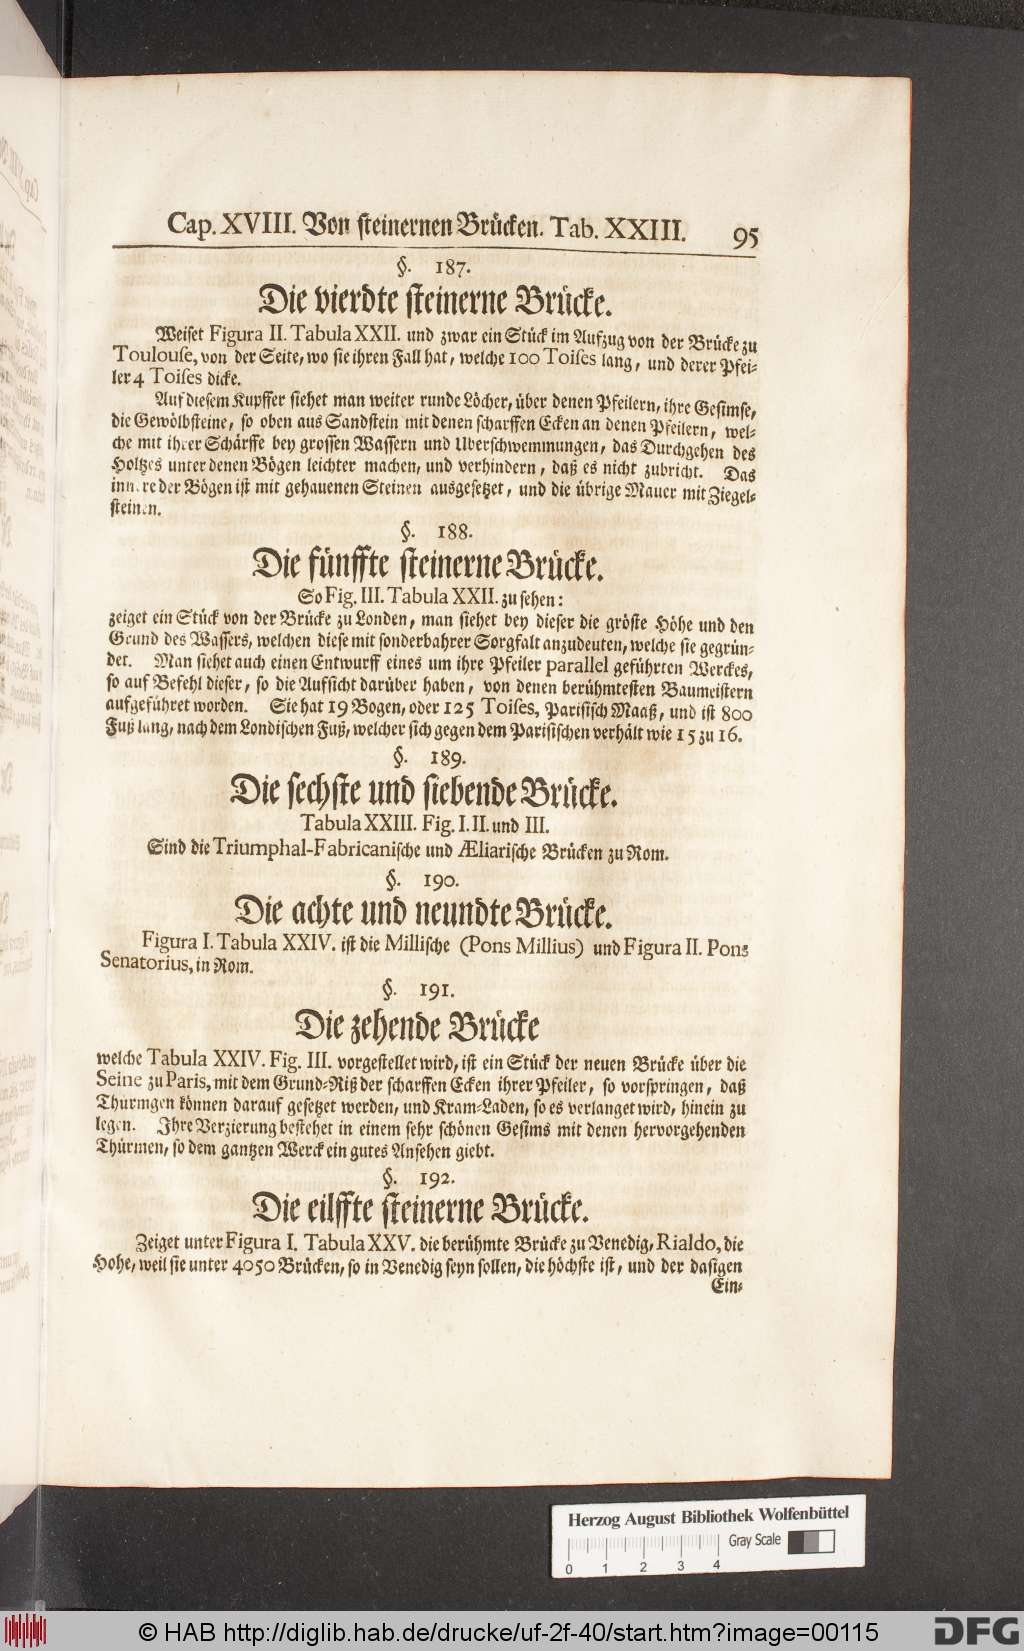 Cap. XVIII. Von steinernen Brücken. Tab. XXIII. 95
§. 187.
Die vierdte steinerne Brücke.
Weiset Figura II. Tabula XXII. und zwar ein Stück im Aufzug von der Brücke zu
Toulouse, von der Seite, wo sie ihren Fall hat, welche 100 Toises lang, und derer Pfei-
ler 4 Toises dicke.
Auf diesem Kupffer siehet man weiter runde Löcher, über denen Pfeilern, ihre Gesimse,
die Gewölbsteine, so oben aus Sandstein mit denen scharffen Ecken an denen Pfeilern, wel-
che mit ihrer Schärffe bey grossen Wassern und Uberschwemmungen, das Durchgehen des
Holtzes unter denen Bögen leichter machen, und verhindern, daß es nicht zubricht. Das
innere der Bögen ist mit gehauenen Steinen ausgesetzet, und die übrige Mauer mit Ziegel-
steinen.
§. 188.
Die fünffte steinerne Brücke.
So Fig. III. Tabula XXII. zu sehen:
zeiget ein Stück von der Brücke zu Londen, man siehet bey dieser die gröste Höhe und den
Grund des Wassers, welchen diese mit sonderbahrer Sorgfalt anzudeuten, welche sie gegrün-
det. Man siehet auch einen Entwurff eines um ihre Pfeiler parallel geführten Werckes,
so auf Befehl dieser, so die Aufsicht darüber haben, von denen berühmtesten Baumeistern
aufgeführet worden. Sie hat 19 Bogen, oder 125 Toises, Parisisch Maaß, und ist 800
Fuß lang, nach dem Londischen Fuß, welcher sich gegen dem Parisischen verhält wie 15 zu 16.
§. 189.
Die sechste und siebende Brücke.
Tabula XXIII. Fig. I. II. und III.
Sind die Triumphal-Fabricanische und Æliarische Brücken zu Rom.
§. 190.
Die achte und neundte Brücke.
Figura I. Tabula XXIV. ist die Millische (Pons Millius) und Figura II. Pons
Senatorius, in Rom.
§. 191.
Die zehende Brücke
welche Tabula XXIV. Fig. III. vorgestellet wird, ist ein Stück der neuen Brücke über die
Seine zu Paris, mit dem Grund-Riß der scharffen Ecken ihrer Pfeiler, so vorspringen, daß
Thürmgen können darauf gesetzet werden, und Kram-Laden, so es verlanget wird, hinein zu
legen. Ihre Verzierung bestehet in einem sehr schönen Gesims mit denen hervorgehenden
Thürmen, so dem gantzen Werck ein gutes Ansehen giebt.
§. 192.
Die eilffte steinerne Brücke.
Zeiget unter Figura I. Tabula XXV. die berühmte Brücke zu Venedig, Rialdo, die
Hohe, weil sie unter 4050 Brücken, so in Venedig seyn sollen, die höchste ist, und der dasigen
Ein-
Herzog August Bibliothek Wolfenbüttel
Gray Scale
0 1 2 3 4
© HAB http://diglib.hab.de/drucke/uf-2f-40/start.htm?image=00115
DFG